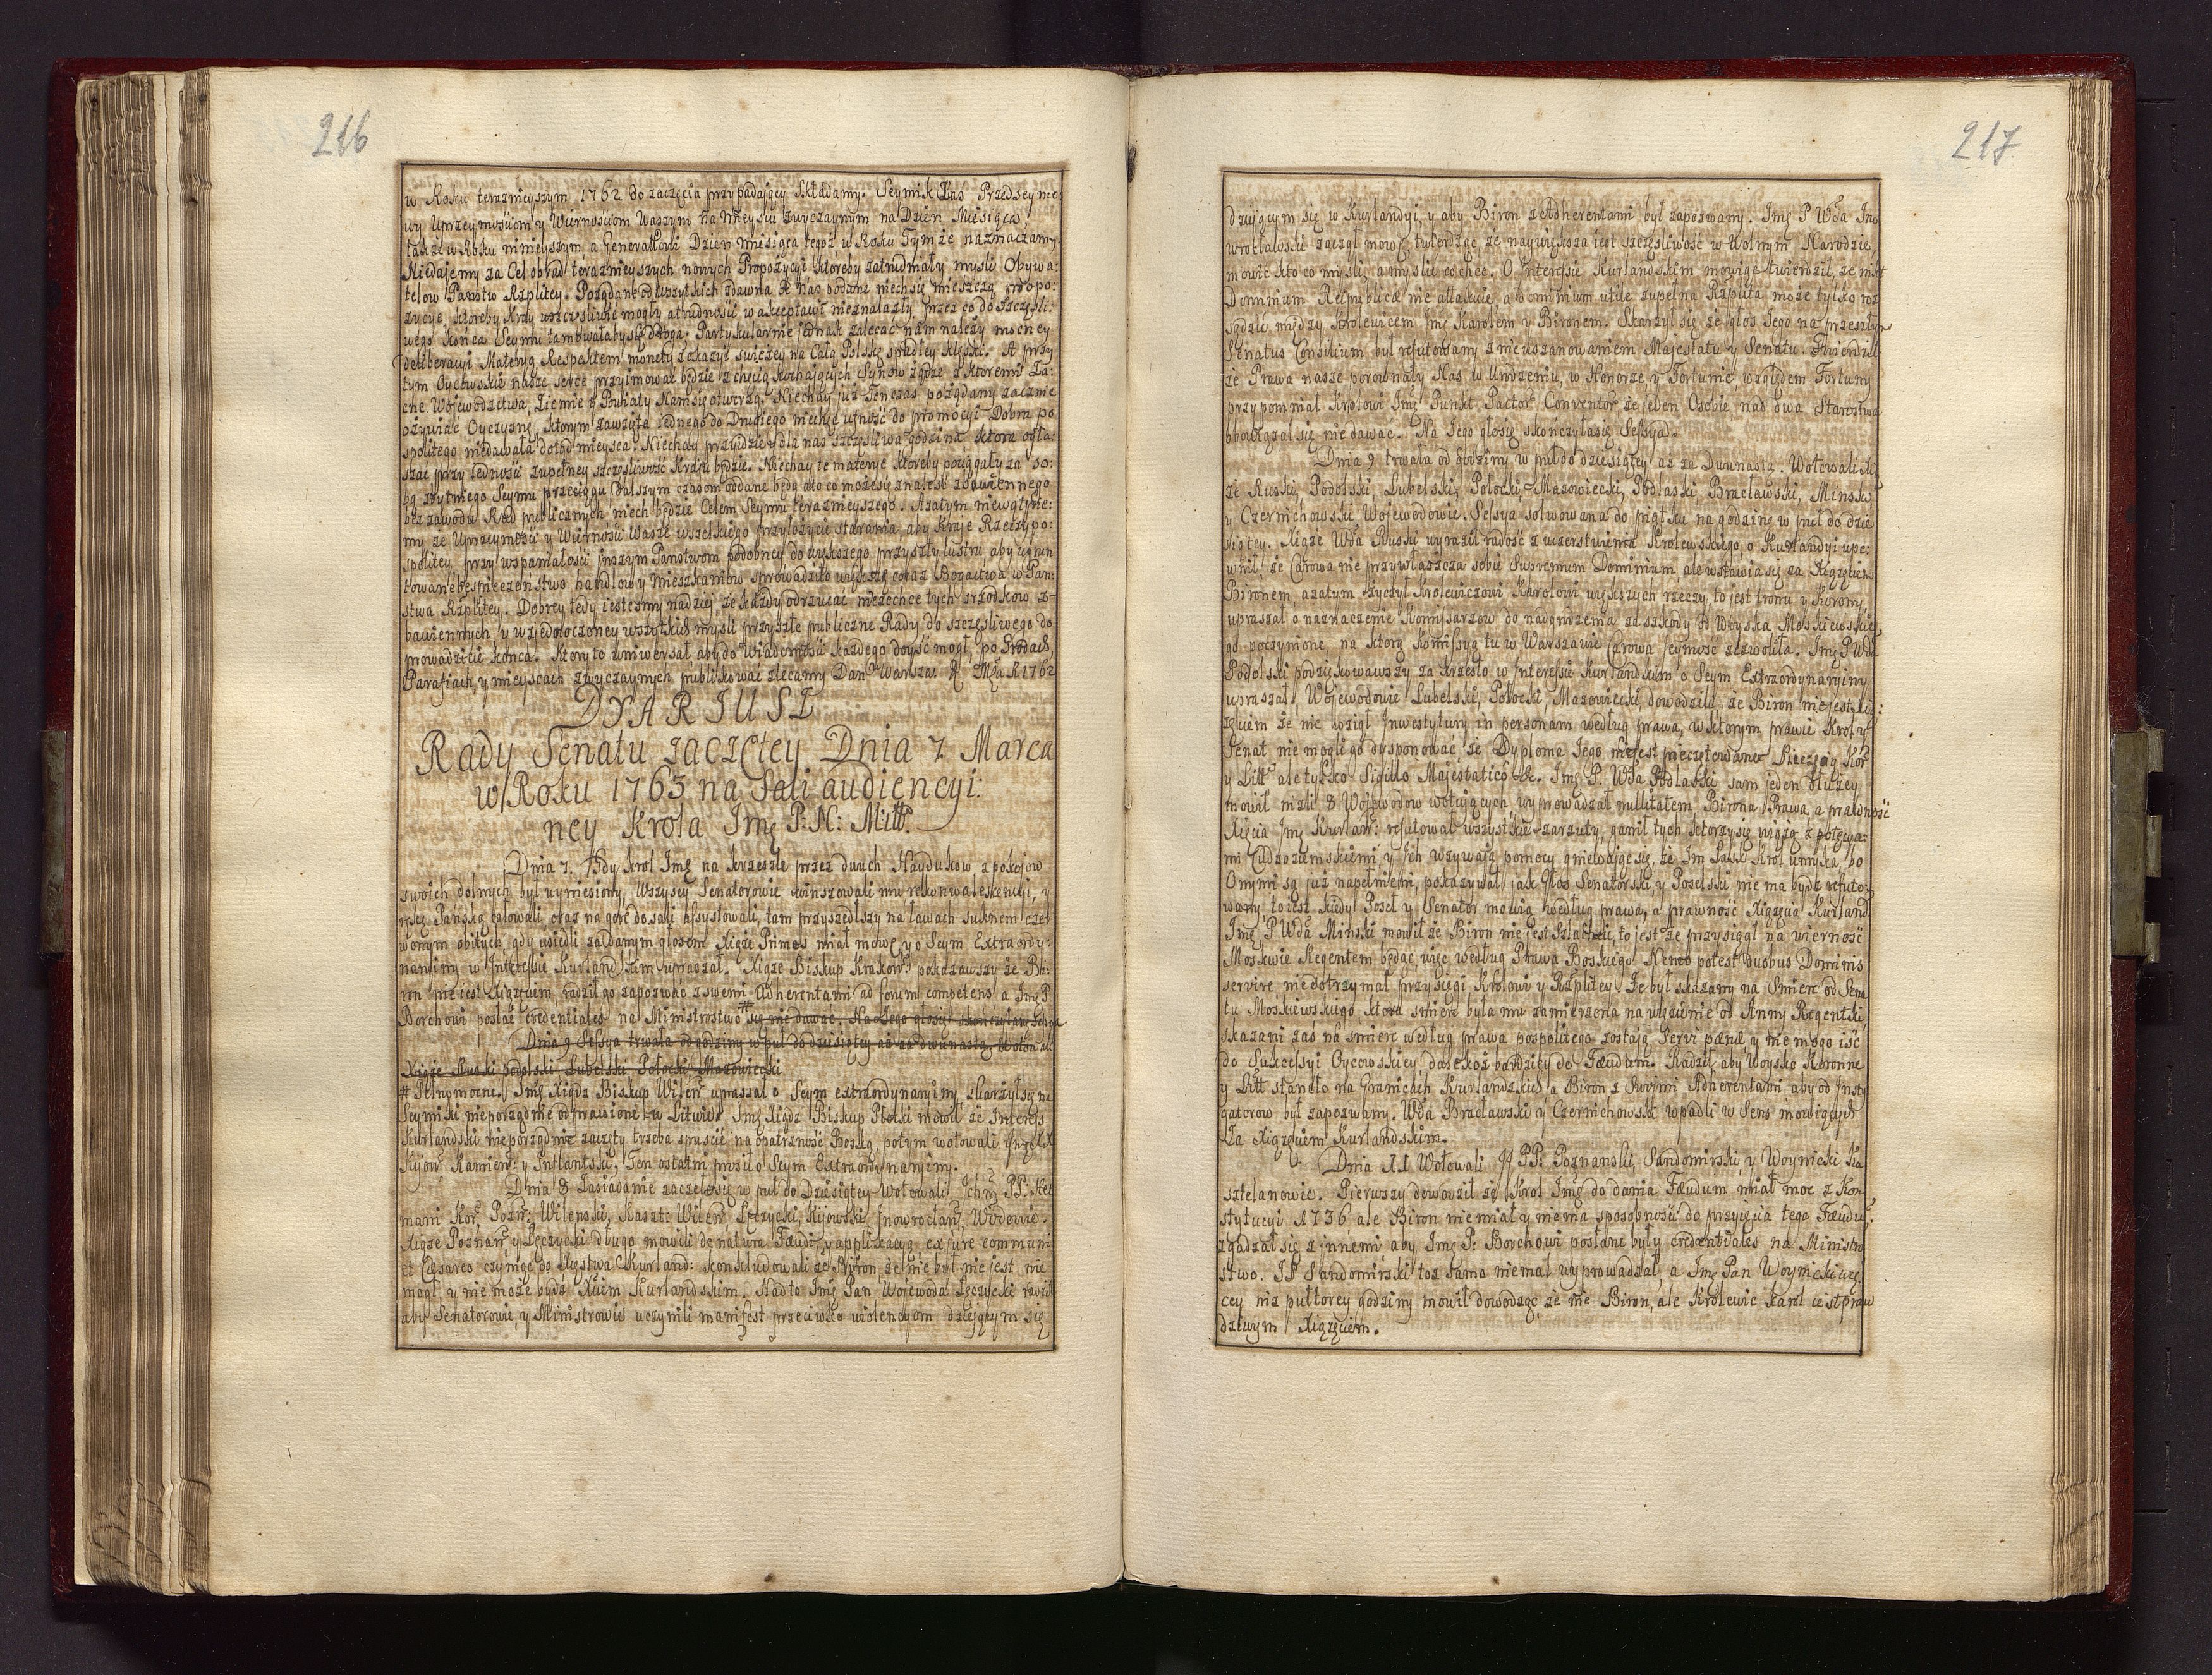 216
w Roku teraznieyszym 1762 do zaczęcia przypadający Składamy. Seymik Zaś Przedseymo:
wy Uprzeymościom y Wiernościom Waszym na Mieyscu zwyczaynym na Dzien Miesiąca
także w Roku ninieyszym a Generałowi Dzien miesiąca tegoż w Roku Tymże naznaczamy.
Niedajemy za Cel obrad teraznieyszych nowych Propozycyi ktoreby zatrudniały mysli Obywa:
telow Panstw Rzplitey. Pożądane od wszytkich zdawna
zycye, ktoreby Kray uszczęsliwić mogły a trudności w akceptacyi nieznalazły przez co do szczęśli:
wego Końca Seymu tamowałaby się droga. Partykularnie jednak zalecać nam należy mocney
deliberacyi Materyą Respektem monety z okazyi swieżey na Całą Polskę spadłey klęski. A przy
tym Oycowskie nasze serce przyimować będzie z chęcią kochających Synow żądze z ktoremi Za:
cne Wojewodztwa, Ziemie y Powiaty Nam się otworzą. Niechay już Tenczas pożądany zacznie
ożywiać Oyczyznę, ktorym zawzięta jednego do Drugiego niechęć ufność do promocyi Dobra po
spolitego niedawała dotąd mieysca. Niechay przyidzie y dla nas szczęsliwa godzina ktora ogła:
szać przy jedności zupełney szczęsliwość Kraju będzie. Niechay te materye ktoreby pociągały za so:
bą zbytniego Seymu przeciągu dalszym czasom oddane będą a to co może się znaleść zbawiennego
bez zawodu Rad publicznych niech będzie Celem Seymu terazniejszego. A zatym niewątpie:
my że Uprzeymości y Wierności Wasze wszelkiego przyłożycie starania, aby Kraje Rzeczypo:
spolitey przy wspaniałości inszym Panstwom podobney do większego przyszły lustru, aby ugrun
towane bespieczenstwo handlow y mieszkańcow sprowadziło większe coraz Bogactwa w Pan:
stwa Rzplitey. Dobrey tedy iestesmy nadziei że każdy odrzucać niezechce tych srzodkow z-
bawiennych y w zjednoczoney wszytkich mysli przyszłe publiczne Rady do szczęśliwego do
prowadzicie końca. Ktory to uniwersał aby do Wiadomości każdego doyść mogł, po Grodach,
Parafiach, y mieyscach zwyczaynych publikować zlecamy Dan w Warszaw
DYARIUSZ
Rady Senatu zaczętey Dnia 7 Marca
w Roku 1763 na Sali audiencyi:
ney Krola Jmę P: N: Miłł.
Dnia 7. Gdy krol Jmę na krzesle przez dwuch Haydukow z pokojow
swoich dolnych był wyniesiony, Wszyscy Senatorowie winszowali mu rekonwalescencyi, y
rękę Pańską całowali, oraz na gorę do sali assystowali, tam przyszedłszy na ławach suknem czer
wonym obitych, gdy usiedli za danym głosem Xiąże Primas miał mowę y o Seym Extraordy:
naryiny w Interessie Kurlandskim upraszał. Xiąże Biskup Krakow: pokazawszy że Bi:
ron nie iest Xiążęciem, radził go zapozwać z swemi Adherentami ad forum competens a Jmę P
Borchowi posłać credentiales na Ministrostwo # się nie dawać. Na Jego głosie skonczyła się Sessya
Dnia 9 Sessya trwała od godziny w puł do dziesiątey aż za dwunastą. Wotowali
Xiąże Ruski Podolski Lubelski Połocki, Mazowiecki
# Pełnomocne. Jmę Xiądz Biskup Wileń: upraszał o Seym extraordynaryiny skarżył się na
Seymiki nieporządnie odprawione w Litwie. Jmę Xiądz Biskup Płocki mowił że Interess
Kurlandski nieporządnie zaczęty trzeba spuścić na opatrzność Boską, potym wotowali
Kijow: Kamien: y Inflantski, Ten ostatni prosił o Seym Extraordynaryiny.
Dnia 8 Zasiadanie zaczęło się w puł do Dziesiątey Wotowali Ichm PP: Het
mani Kor: Pozn: Wilenski, Kaszt: Wilen: Łęczycki, Kijowski, Jnowrocław: Wdowie.
Xiąże Poznań: y Łęczycki długo mowili de natura Fæudi, y applikacyą ex jure commun:
et Cæsareo czyniąc do Xięstwa Kurland: konkludowali że Biron, że nie był nie jest, nie
mogł, y nie może bydź Xciem Kurlandskim. Nad to Jmę Pan Wojewoda Łęczycki radził
aby Senatorowie y Ministrowie uczynili manifest przeciwko violencyom dziejącym się
217
dziejącym się w Kurlandyi, y aby Biron z Adherentami był zapozwany. Jmę P Wda Ino
wrocławski zaczął mowę twierdząc, że naywiększa iest szczęsliwość w Wolnym Narodzie
mowić kto co mysli, a myslić co chce. O Interesie Kurlandskim mowiąc twierdził, że nikt
Dominium Reipublicæ nie attakuie a Dominium utile zupełna Rzplita może tylko roz
sądzić między Krolewicem Jmę Karolem y Bironem. Skarżył się że głos Jego na przeszłym
Senatus Consilium był refutowany z nieuszanowaniem Majestatu y Senatu. Twierdził
że Prawa nasze porownały Nas w Urodzeniu, w Honorze y Fortunie względem Fortuny
przypomniał Krolowi Jmę Punkt Pactor: Conventor: że jeden Osobie, nad dwa Starostwa
obowiązał się nie dawać. Na Jego głosie skończyła się Sessya.
Dnia 9 trwała od godziny w puł do dziesiątey aż za Dwunastą. Wotowali Xią
że Ruski, Podolski, Lubelski, Połocki, Mazowiecki, Podlaski, Bracławski, Minski
y Czernichowski Wojewodowie. Sessya solwowana do piątku na godzinę w puł do dzie
siątey. Xiąże Wda Ruski wyraził radość z uczerstwienia Krolewskiego o Kurlandyi upe:
wnił, że Carowa nie przywłaszcza sobie Supremum Dominium, ale wstawia się za Xiążęciem
Bironem, a zatym życzył Krolewiczowi Karolowi większych rzeczy, to jest tronu y Korony,
upraszał o naznaczenie Komissarzow do nadgrodzenia za szkody od Woyska Moskiewskie
go poczynione, na ktorą Komissyą tu w Warszawie Carowa Jeymość zezwoliła. Jmę P Wda
Podolski podziękowawszy za krzesło w Interesie Kurlandskim o Seym Extraordynaryiny
upraszał. Wojewodowie Lubelski, Połocki, Mazowiecki dowodzili, że Biron nie jest Xią:
żęciem że nie wziął Inwestytury in personam według prawa, w ktorym prawie Krol y
Senat nie mogli go dysponować że Dyploma Jego nie jest pieczętowane Pieczęcią Kor:
y Litt: ale tylko Sigillo Majestatico &c. Jmę P. Wda Podlaski sam jeden dłużey
mowił niżli 8 Wojewodow wotujących wyprowadzał nullitatem, Birona Prawa, a prawność
Xięcia Jmę Kurlan: refutował wszystkie zarzuty, ganił tych ktorzy się wiążą z potęga:
mi Cudzoziemskiemi, y ich wzywają pomocy gniewając się, że Im Łask Krol umyka, bo
Onymi są już napełnieni, pokazywał jak Głos Senatorski, y Poselski nie ma bydz refuto:
wany to iest kiedy Poseł y Senator mowią według prawa, a prawność Xiążęcia Kurland:
Jmę P Wda Minski mowił że Biron nie jest Szlachcic, to jest że przysiągł na wierność
Moskwie Regentem będąc, więc według Prawa Boskiego Nemo potest duobus Dominis
servire niedotrzymał przysięgi Krolowi y Rzplitey. Że był skazany na Smierć od Sena
tu Moskiewskiego, ktora smierć była mu zamierzona na więzienie od Anny Regentki,
skazani zaś na smierć według prawa pospolitego zostają Servi pænæ y nie mogo iść
do Sukcessyi Oycowskiey, dalekoż bardziey do Fæudum. Radził aby Woysko Koronne
y Litt: staneło na Granicach Kurlandzkich a Biron z Swymi Adherentami aby od Insty
gatorow był zapozwany. Wda Bracławski y Czernichowski wpadli w Sens mowiących
za Xiążęciem Kurlandskim.
Dnia 11 Wotowali JJ PP: Poznanski, Sandomirski, y Woynicki Ka
sztelanowie. Pierwszy dowodził że Krol Jmę do dania Fæudum miał moc z Kon
stytucyi 1736 ale Biron nie miał y niema sposobności do przyięcia tego Fæudu:
zgadzał się z innemi aby Jmę P: Borchowi posłane były credentiales na Ministro
stwo. JP Sandomirski toż samo niemal wyprowadzał, a Jmę Pan Woynicki wię
cey niż pułtorey godziny mowił dowodząc że nie Biron, ale Krolewic Karol iest praw
dziwym Xiążęciem.